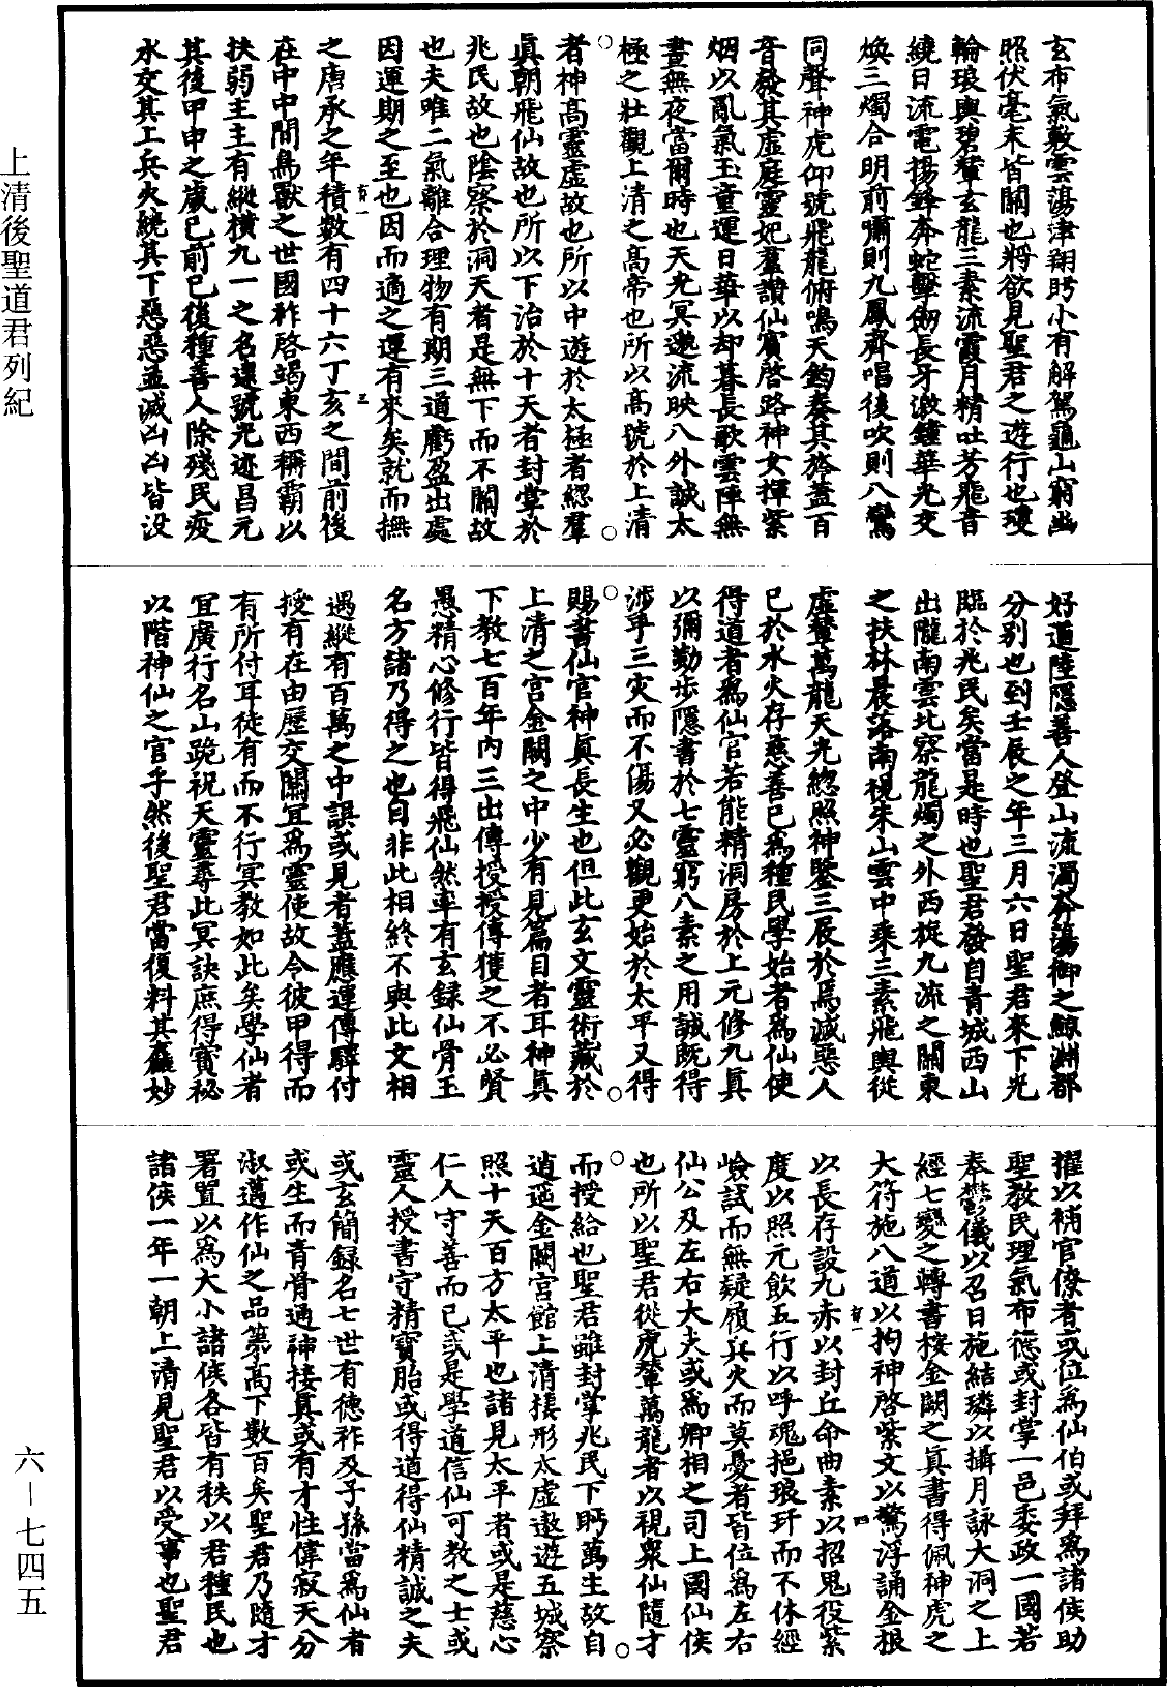 玄布氣敷雲蕩津翔眄小有解駕龜山窮幽
照伏毫末皆關也將欲見聖君之遊行也瓊
輪琅輿碧輦玄龍三素流霞月精吐芳飛音
繞日流電揚鋒奔蛇擊劒長牙激鐘華光交
煥三燭合明前嘯則九鳳齊唱後吹則八鸞
同聲神虎仰號飛龍俯鳴天鈞奏其旍蓋百
音發其虛庭靈妃羣讚仙賓啓路神女揮紫
烟以亂氣玉童運日華以却暮長歌雲陣無
晝無夜當爾時也天光冥邈流映八外誠太
極之壯觀上清之高帝也所以高號於上清
○○
者神高靈虛故也所以中遊於太極者緫羣
眞朝飛仙故也所以下治於十天者封掌於
兆民故也陰察於洞天者是無下而不關故
也夫唯二氣離合理物有期三道虧盈出處
因運期之至也因而適之運有來矣就而撫
有一 三
之唐承之年積數有四十六丁亥之間前後
在中中間鳥獸之世國祚啓竭東西稱霸以
扶弱主主有縱橫九一之名還號光迹昌元
其後甲申之歲已前已後種善人除殘民疫
水交其上兵火繞其下惡惡並滅凶凶皆没
好道陸隱善人登山流濁奔蕩御之鯨淵都
分別也到壬辰之年三月六日聖君來下光
臨於兆民矣當是時也聖君發自青城西山
出隴南雲北察龍燭之外西旋九流之關東
之扶林晨落南視朱山雲中乘三素飛輿從
虛輦萬龍天光緫照神鑒三辰於爲滅惡人
已於水火存慈善已爲種民學始者爲仙使
得道者爲仙官若能精洞房於上元修九眞
以彌勤步隱書於七靈窮八素之用誠既得
渉乎三灾而不傷又必觀更始於太平又得
○○
賜書仙官神眞長生也但此玄文靈術藏於
上清之宮金闕之中少有見篇目者耳神眞
下教七百年内三出傳授授傳獲之不必賢
愚精心修行皆得飛仙然率有玄録仙骨玉
名方諸乃得之也自非此相終不與此文相
遇縱有百萬之中誤或見者蓋應運傳驛付
授有在由歷交關宜爲靈使故令彼甲得而
有所付耳徒有而不行冥教如此矣學仙者
宜廣行名山跪祝天靈尋此冥訣庶得寶祕
以階神仙之官乎然後聖君當復料其麤妙
擢以補官僚者或位爲仙伯或拜爲諸侯助
聖教民理氣布德或封掌一邑委政一國若
奉鬱儀以召日施結璘以攝月詠大洞之上
經七變之轉書按金闕之眞書得佩神虎之
大符施八道以拘神啓紫文以驚浮誦金根
有一 四
以長存設九赤以封丘命曲素以招鬼役紫
度以照元飲五行以呼魂挹琅玕而不休經
嶮試而無疑履兵火而莫憂者皆位爲左右
仙公及左右大夫或爲卿相之司上國仙侯
也所以聖君從虎輦萬龍者以視衆仙隨才
○○
而授給也聖君雖封掌兆民下眄萬生故自
逍遥金闕宮館上清棲形太虛遨遊五城察
照十天百方太平也諸見太平者或是慈心
仁人守善而已或是學道信仙可教之士或
靈人授書守精寶胎或得道得仙精誠之夫
或玄簡録名七世有德祚及子孫當爲仙者
或生而青骨通神接眞或有才性偉寂天分
淑邁作仙之品第高下數百矣聖君乃隨才
署置以爲大小諸侯各皆有秩以君種民也
諸侯一年一朝上清見聖君以受事也聖君
上清後聖道君列紀
六－七四五